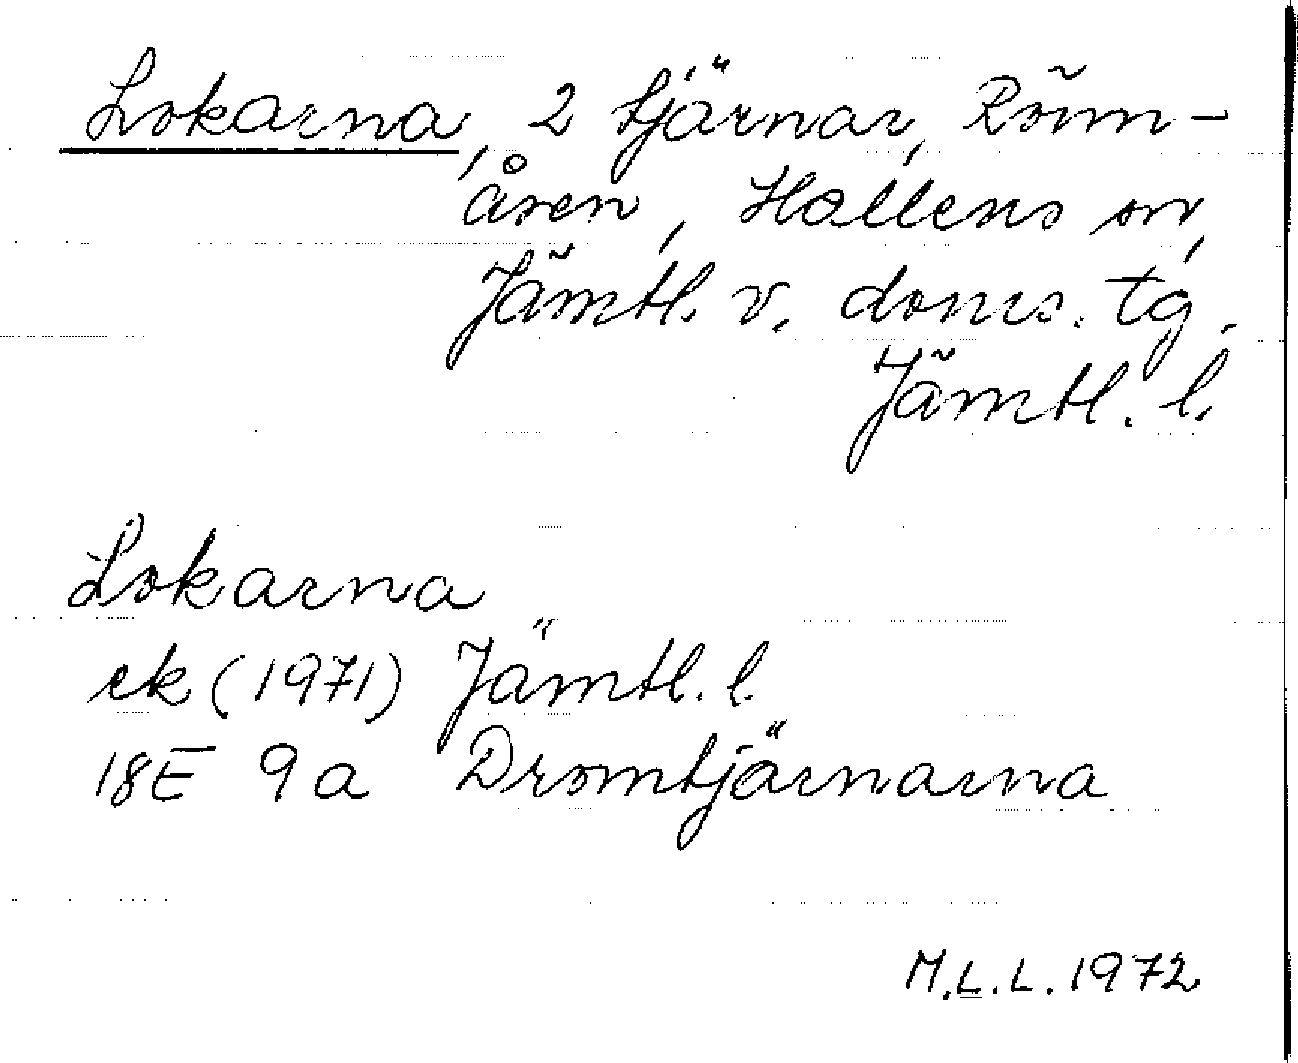 Lokarna, 2 tjärnar, Röun-
åsen, Hallens sn,
Jämtl. v. doms. tg.
Jämtl. l.
Lokarna
ek (1971) Jämtl. l.
18E 9a Dromtjärnarna
M.L.L. 1972